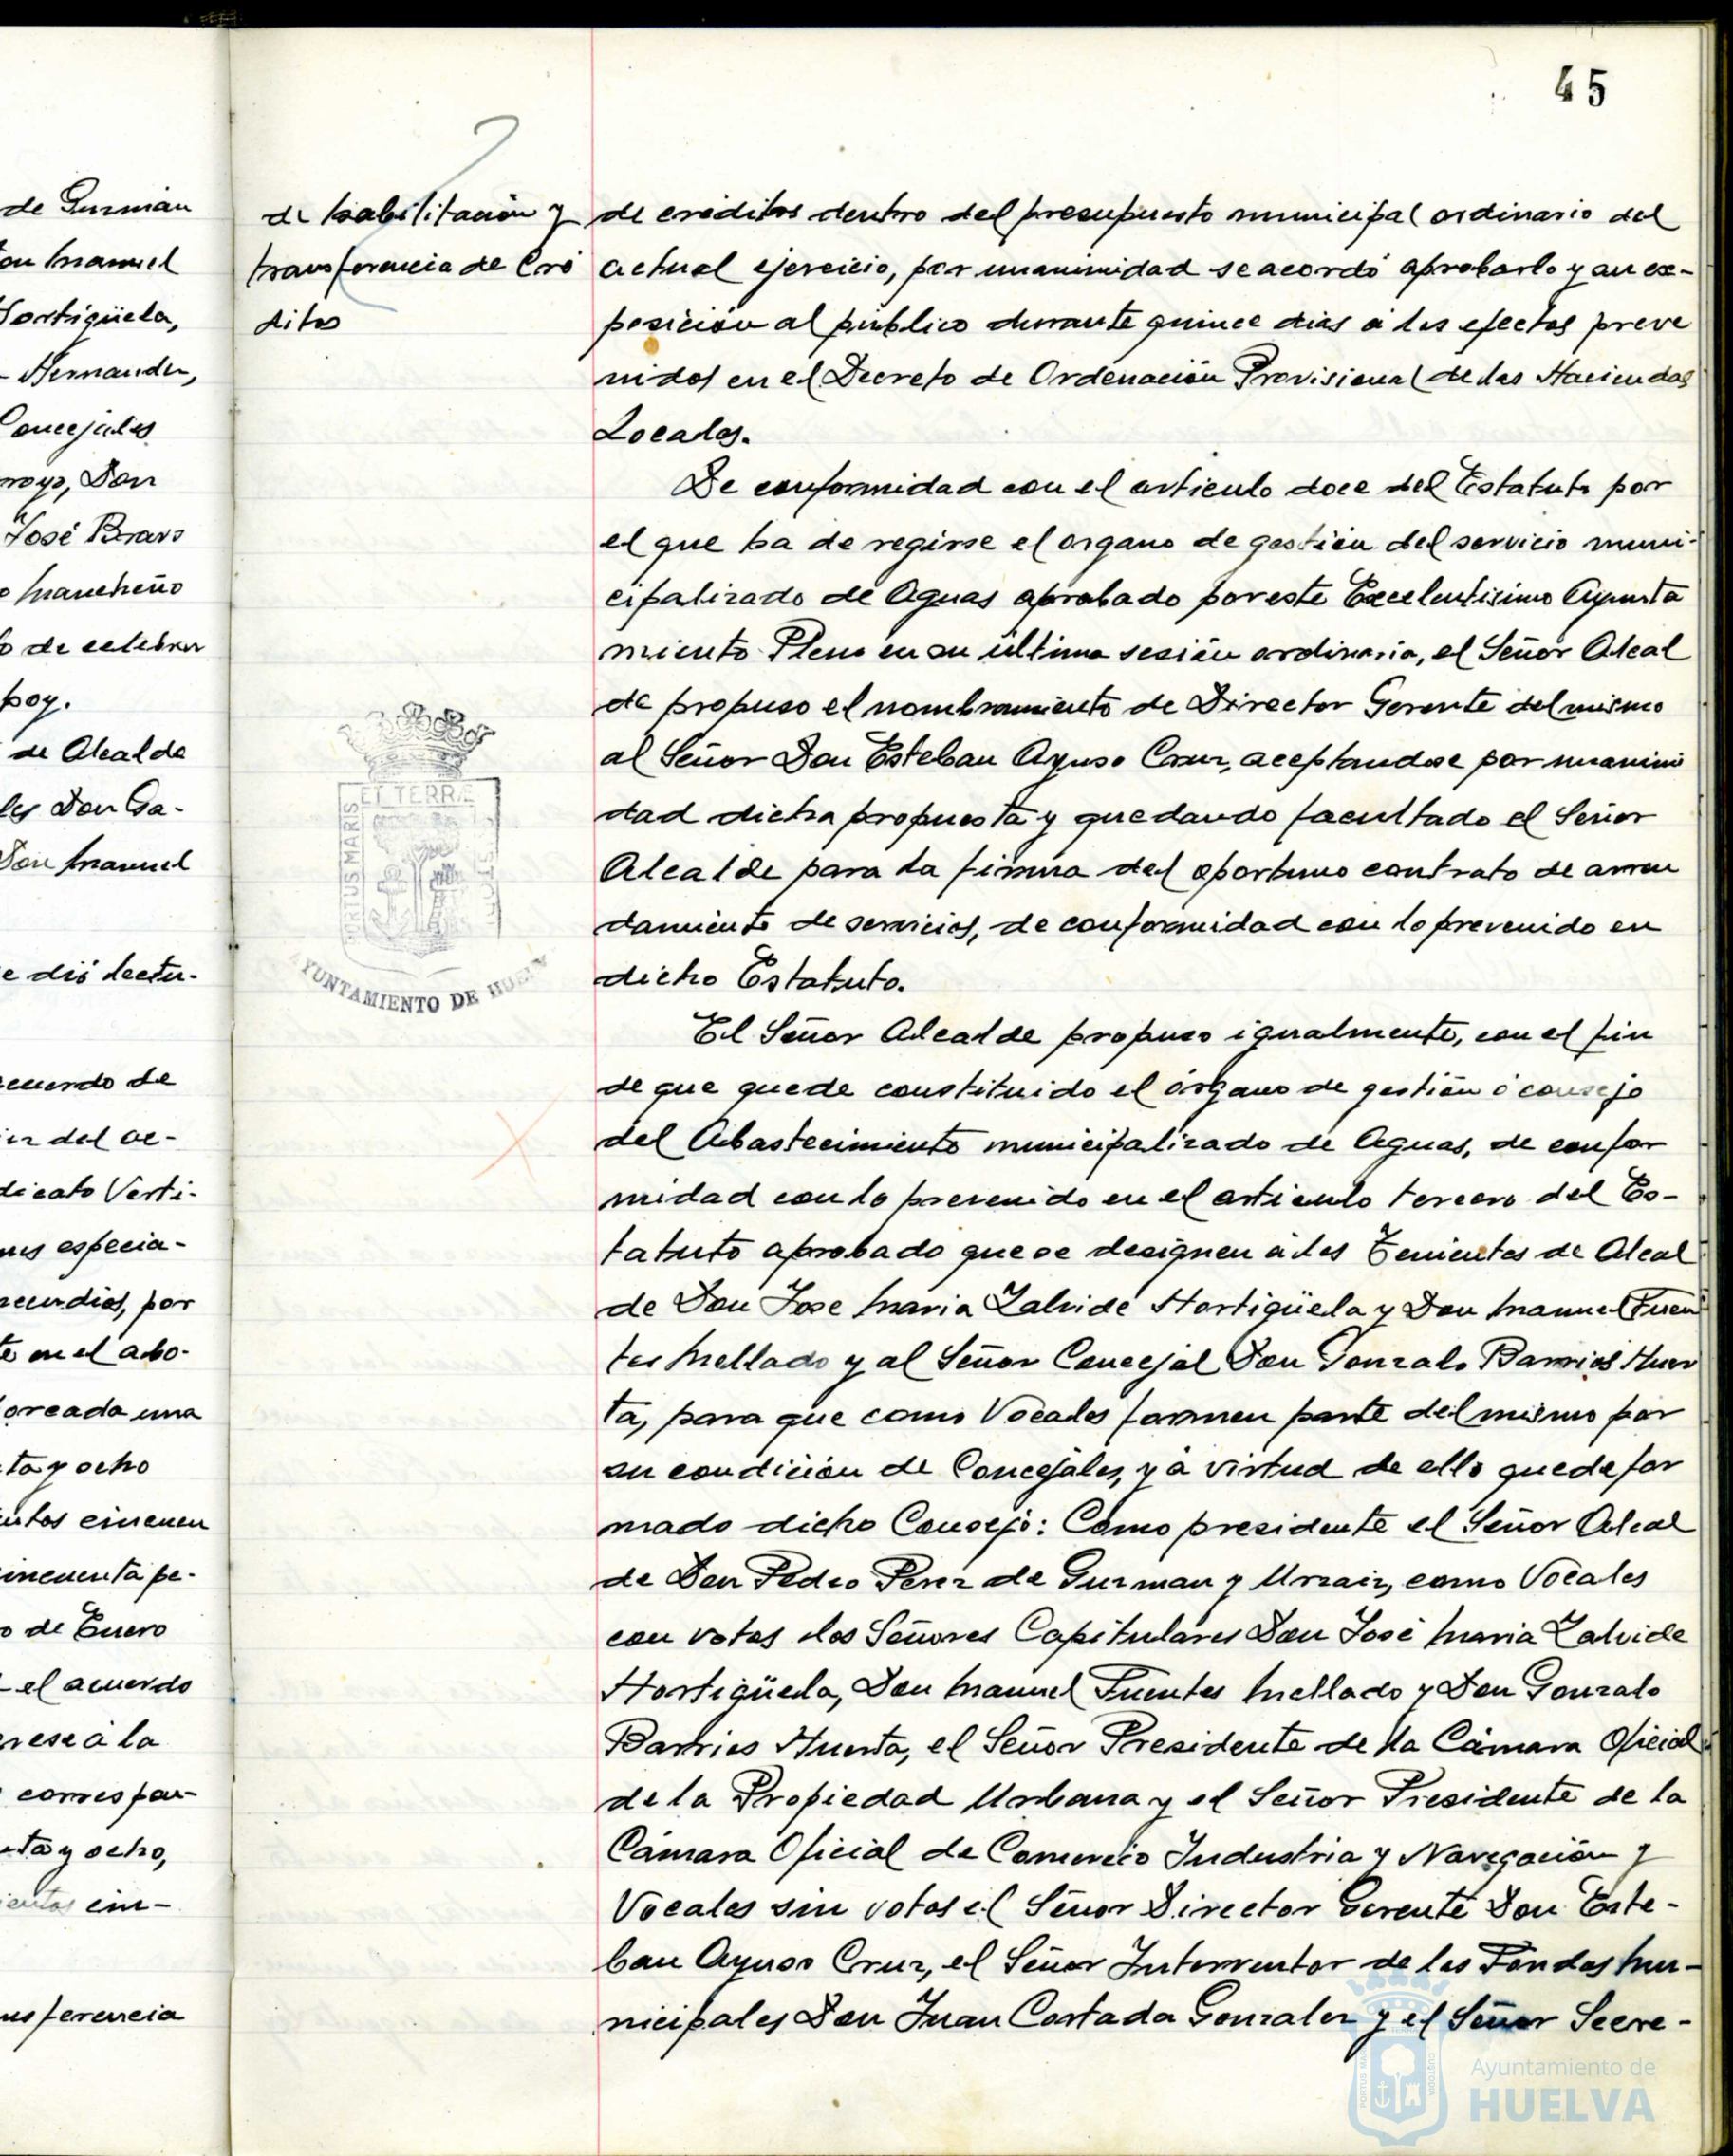 45
de Guzmán
on Manuel
Hortigüela,
Hernandez,
Concejales
rroyo, Don
José Bravo
o Mancheño
o de celebrar
hoy.
de Alcalde
les Don Ga-
Don Manuel
e dió lectu-
cuerdo de
del ac-
dicato Verti-
nes especia-
cendios, por
te en el abo-
oreada una
ta y ocho
entos cincuen
incuenta pe-
o de Enero
el acuerdo
rese á la
correspon-
nta y ocho,
cientos cin-
nsferencia
de habilitación y
transferencia de Cré
ditos
de créditos dentro del presupuesto municipal ordinario del
actual ejercicio, por unanimidad se acordó aprobarlo y su ex-
posición al público durante quince dias á los efectos preve
nidos en el Decreto de Ordenación Provisional de las Haciendas
Locales.
De conformidad con el articulo doce del Estatuto por
el que ha de regirse el organo de gestión del servicio muni-
cipalizado de Aguas aprobado por este Excelentisimo Ayunta
miento Pleno en su última sesión ordinaria, el Señor Alcal
de propuso el nombramiento de Director Gerente del mismo
al Señor Don Esteban Ayuso Cruz, aceptandose por unanimi
dad dicha propuesta y quedando facultado el Señor
Alcalde para la firma del oportuno contrato de arren
damiento de servicios, de conformidad con lo prevenido en
dicho Estatuto.
El Señor Alcalde propuso igualmente, con el fin
de que quede constituido el órgano de gestión ó consejo
del Abastecimiento municipalizado de Aguas, de confor
midad con lo prevenido en el articulo tercero del Es-
tatuto aprobado que se designen á los Tenientes de Alcal
de Don Jose Maria Zalvide Hortigüela y Don Manuel Fuen
tes Mellado y al Señor Concejal Don Gonzalo Barrios Huer
ta, para que como Vocales formen parte del mismo por
su condición de Concejales, y á virtud de ello quede for
mado dicho Consejo: Como presidente el Señor Alcal
de Don Pedro Perez de Guzman y Urzaiz, como Vocales
con votos los Señores Capitulares Don José Maria Zalvide
Hortigüela, Don Manuel Fuentes Mellado y Don Gonzalo
Barrios Huerta, el Señor Presidente de la Cámara Oficial
de la Propiedad Urbana y el Señor Presidente de la
Cámara Oficial de Comercio Industria y Navegación y
Vocales sin votos el Señor Director Gerente Don Este-
ban Ayuso Cruz, el Señor Interventor de los Fondos Mu-
nicipales Don Juan Cortada Gonzalez y el Señor Secre-
PORTUS MARIS
ET TERRÆ
AYUNTAMIENTO DE HUELVA
Ayuntamiento de
HUELVA